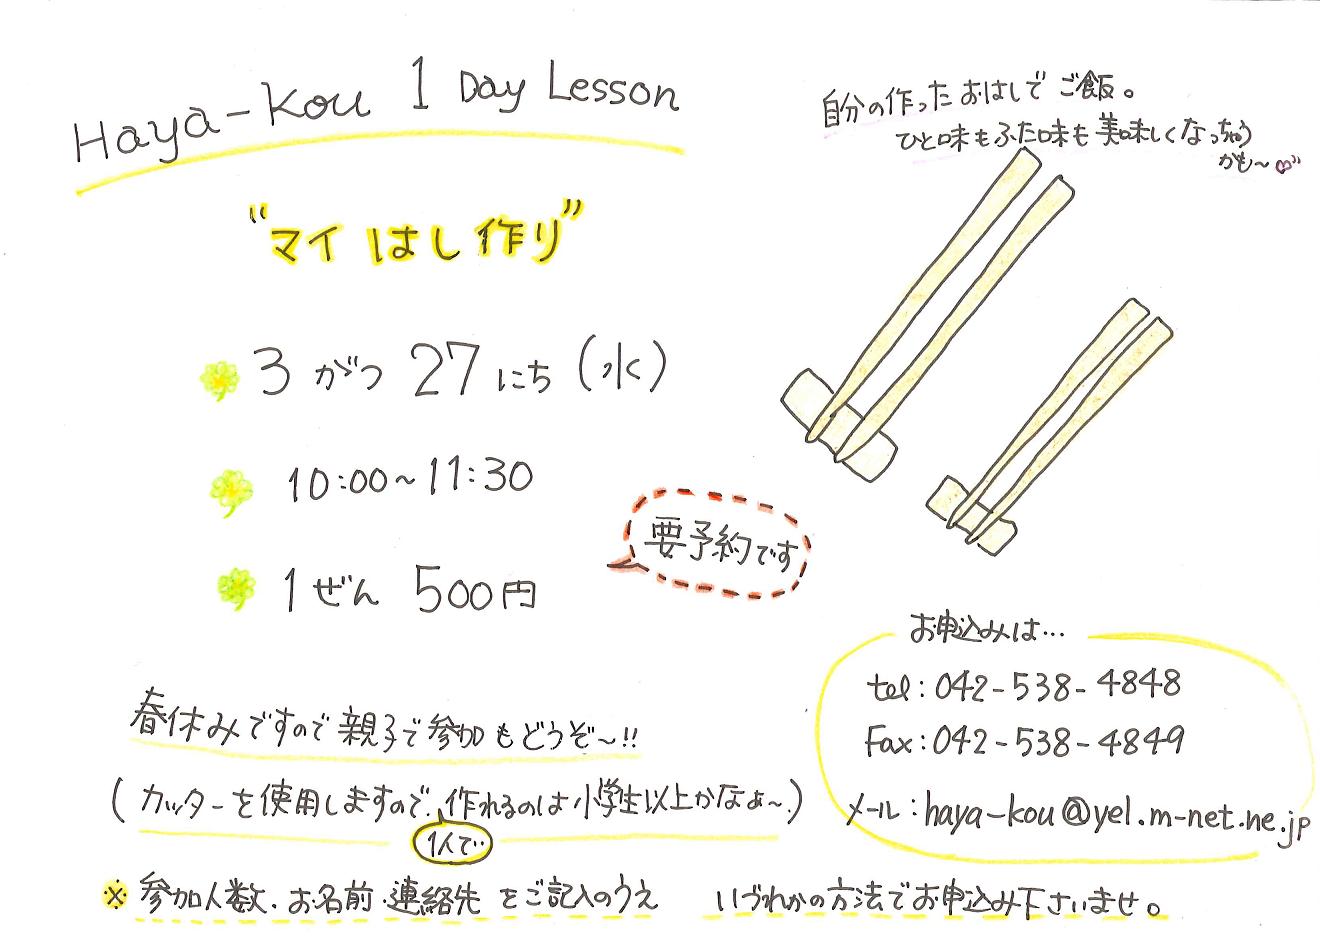 Haya-Kou 1 Day Lesson
"マイ はし 作り"
3 がつ 27 にち (水)
10:00~11:30
1 ぜん 500円
要予約です
自分の作った おはしで ご飯。
ひと味もふた味も 美味しくなっちゃう
かも~♡"
春休みですので 親子で 参加 も どうぞ~!!
(カッターを使用しますので、作れるのは小学生以上かなぁ~。)
1人で‥
※ 参加人数、お名前、連絡先 をご記入のうえ いづれかの方法でお申込み下さいませ。
お申込みは…
tel:042-538-4848
Fax:042-538-4849
メール:haya-kou@yel.m-net.ne.jp